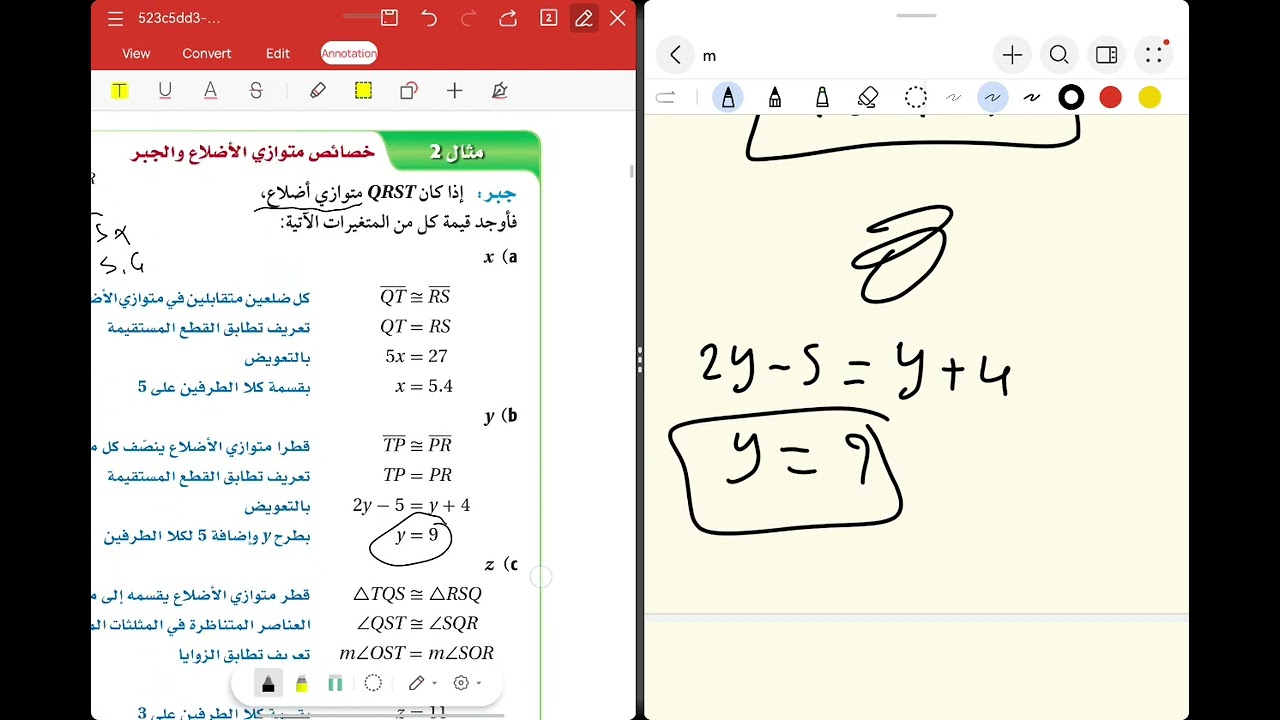 523c5dd3-...
2
View Convert Edit Annotation
T U A S
مثال 2 خصائص متوازي الأضلاع والجبر
جبر: إذا كان QRST متوازي أضلاع،
فأوجد قيمة كل من المتغيرات الآتية:
5x
5.4
x (a
QT ≅ RS كل ضلعين متقابلين في متوازي الأض
QT = RS تعريف تطابق القطع المستقيمة
5x = 27 بالتعويض
x = 5.4 بقسمة كلا الطرفين على 5
y (b
TP ≅ PR قطرا متوازي الأضلاع ينصّف كل م
TP = PR تعريف تطابق القطع المستقيمة
2y − 5 = y + 4 بالتعويض
y = 9 بطرح y وإضافة 5 لكلا الطرفين
z (c
△TQS ≅ △RSQ قطر متوازي الأضلاع يقسمه إلى م
∠QST ≅ ∠SQR العناصر المتناظرة في المثلثات الم
تعريف تطابق الزوايا
z = 11 بقسمة كلا الطرفين على 3
m
2y - 5 = y + 4
y = 9